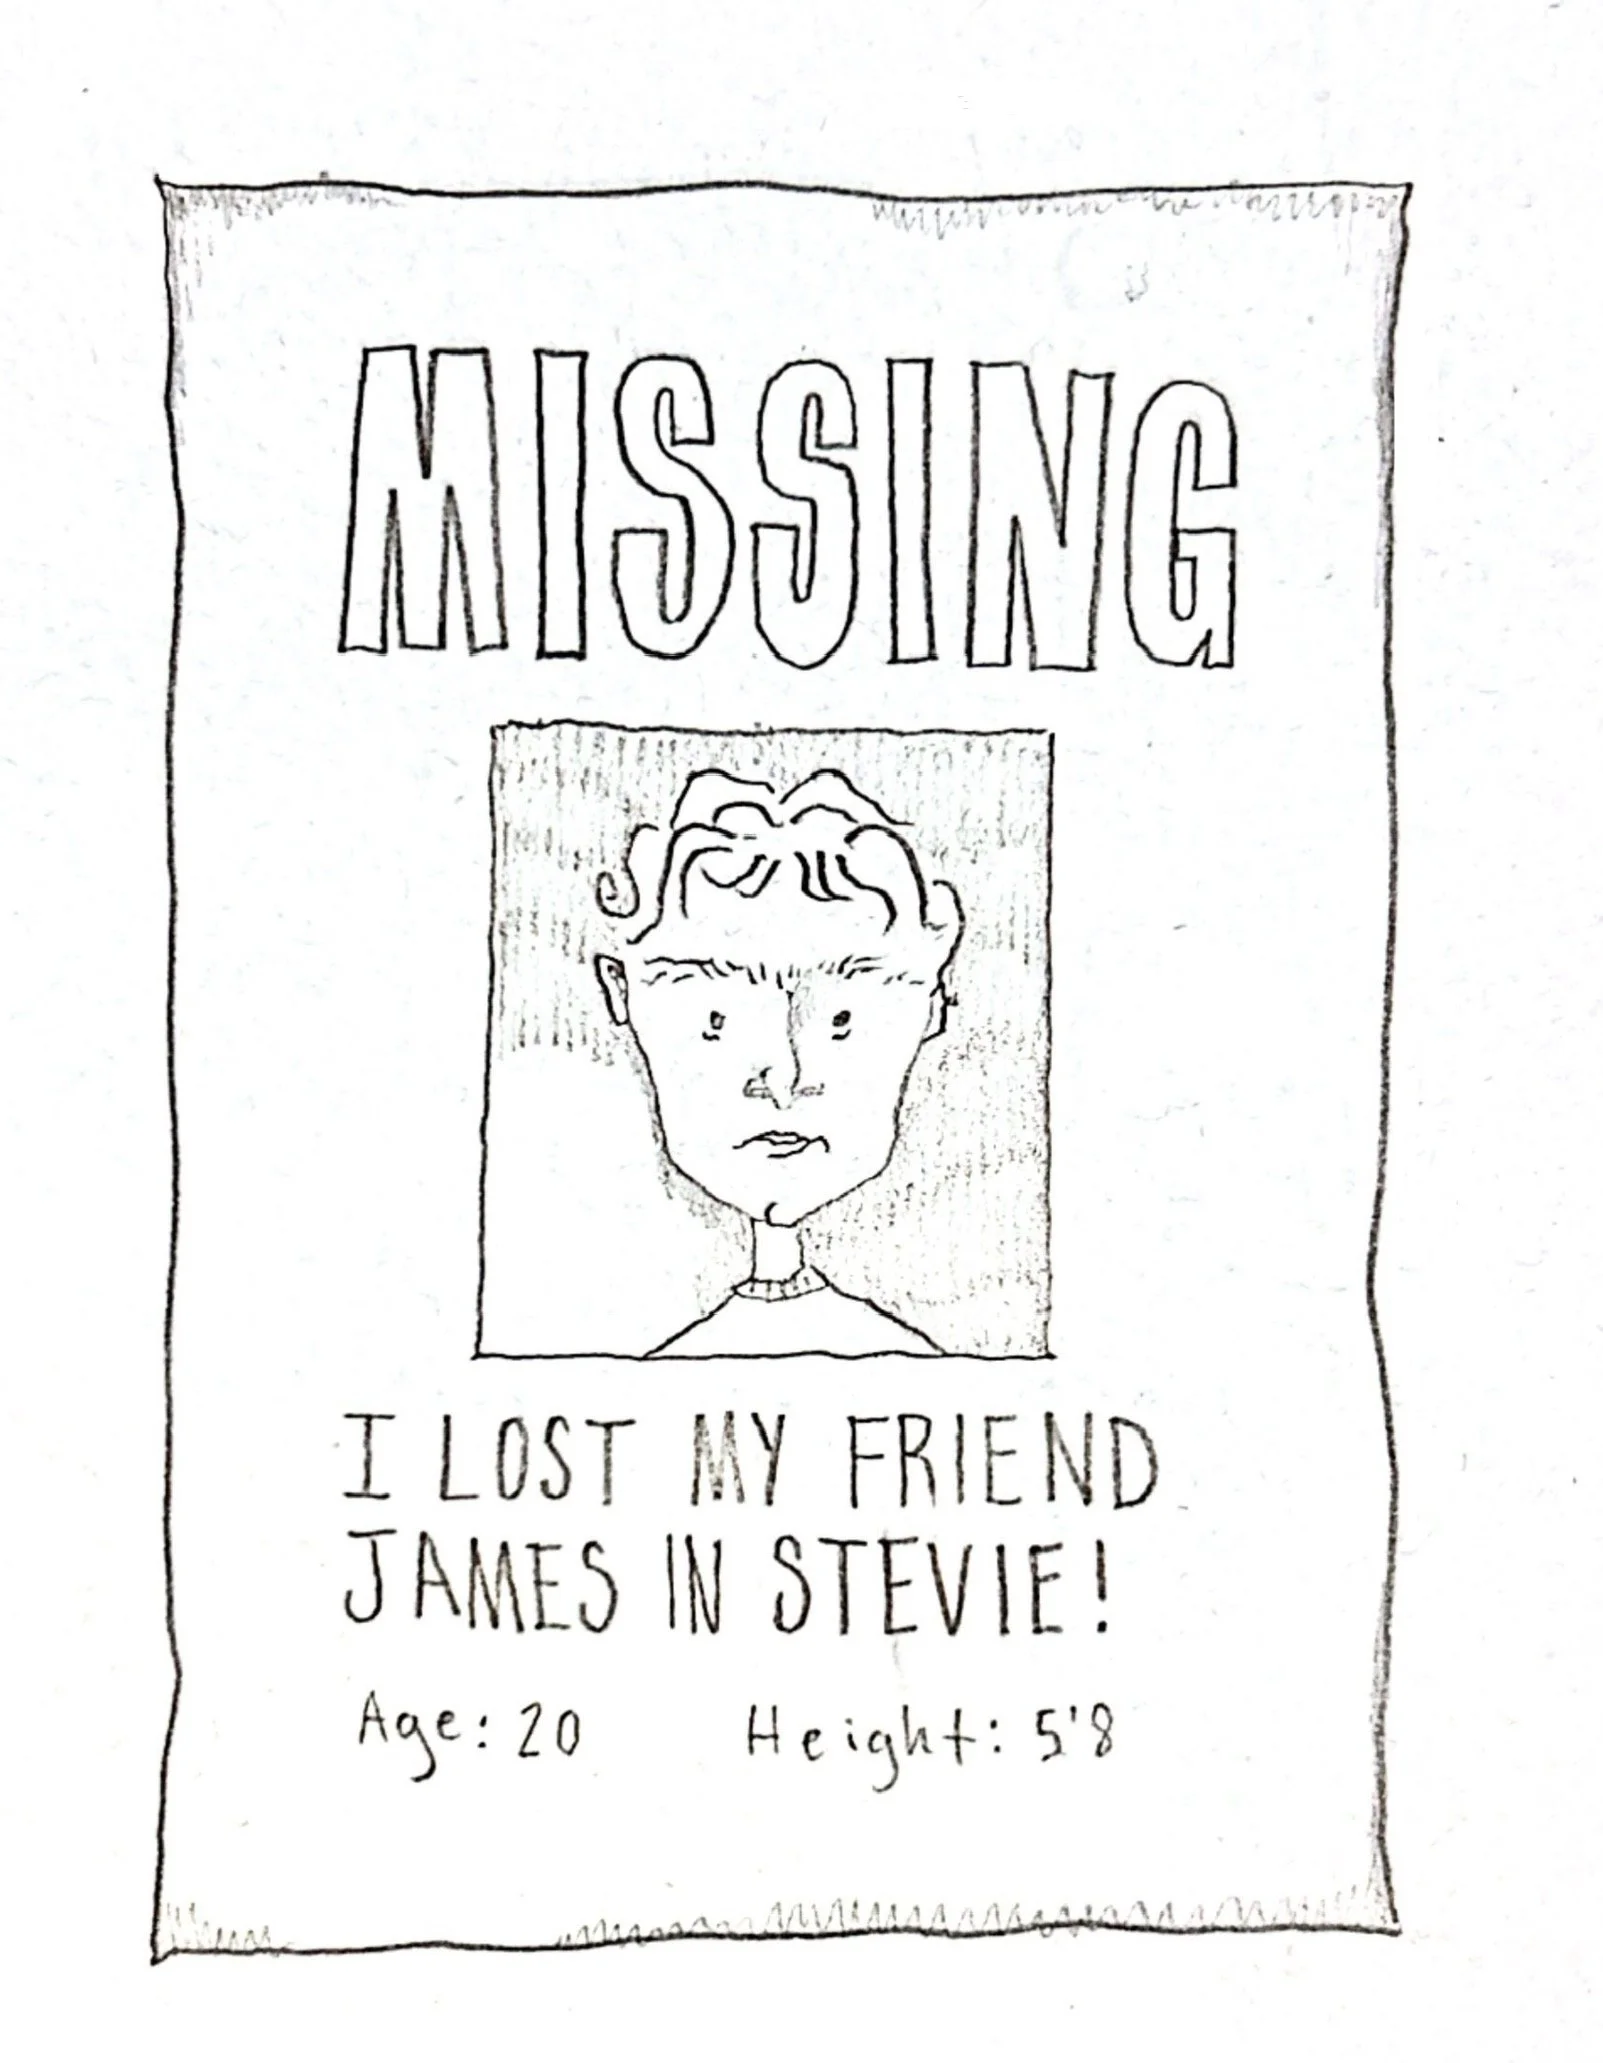 MISSING
I LOST MY FRIEND
JAMES IN STEVIE!
Age: 20 Height: 5'8